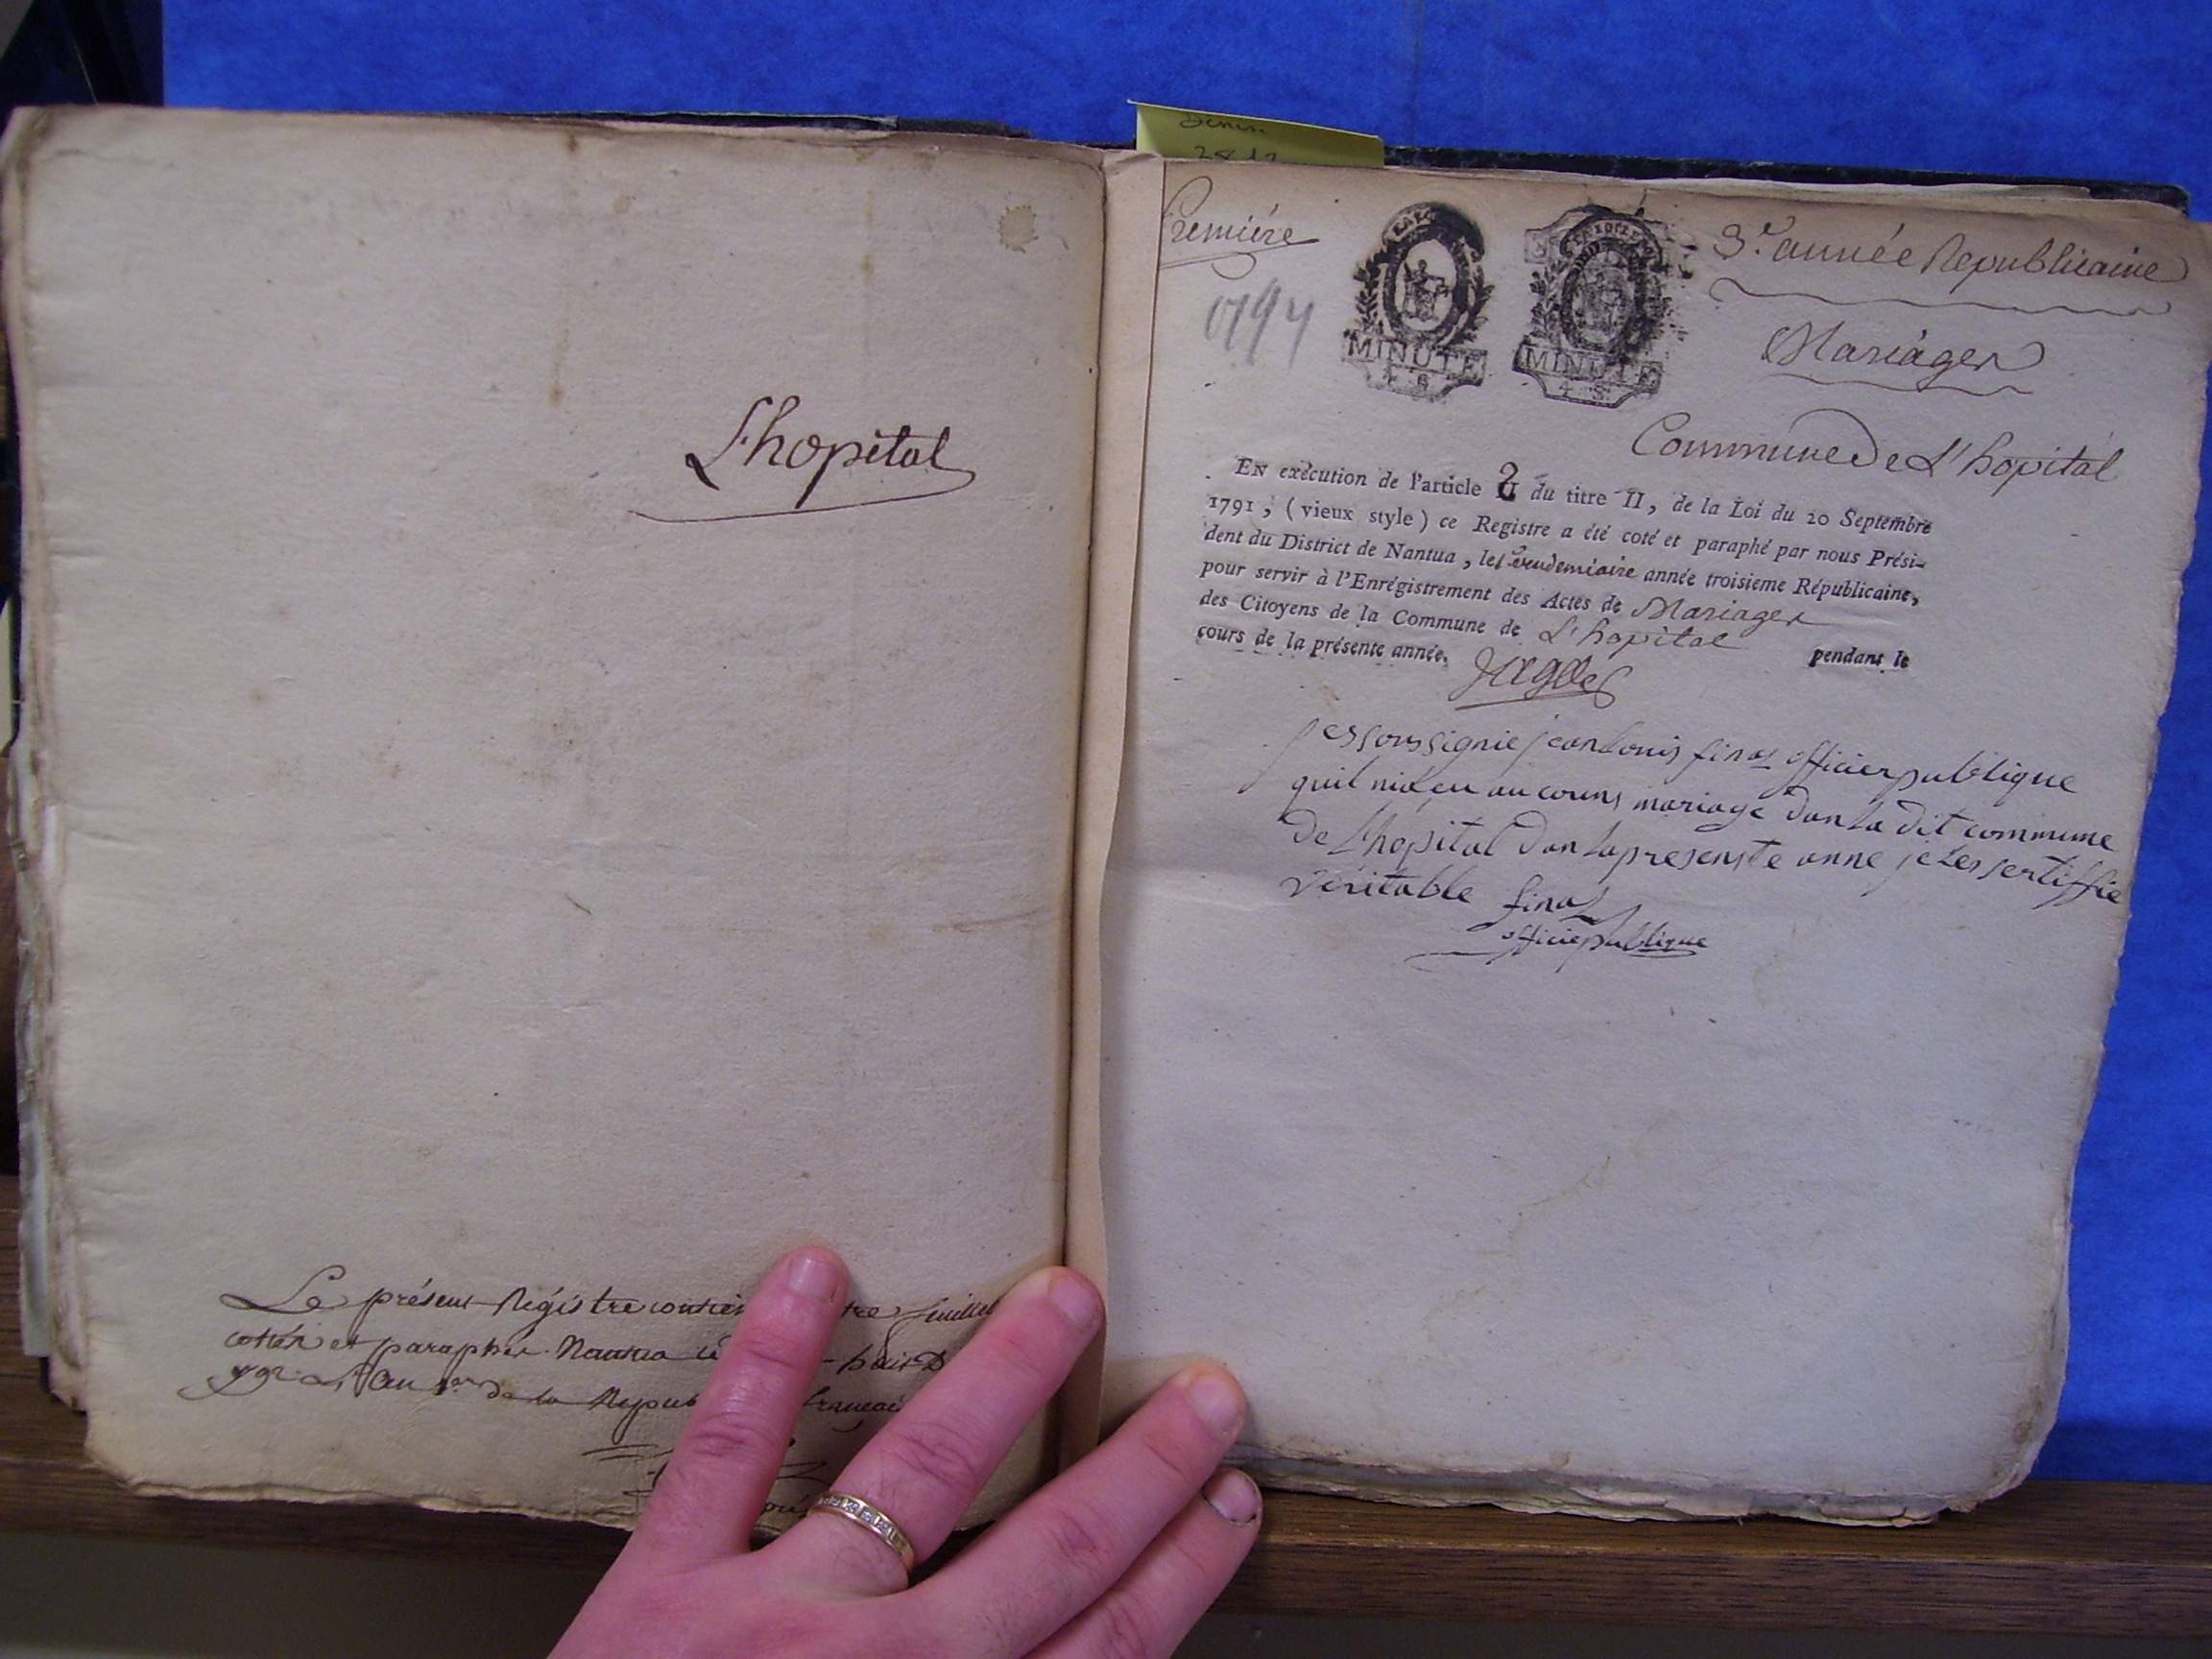 L'hopital
Le présent Régistre feuillet
cottés et paraphés Nantua
de la
Premiére
1794
MINUTE
4 S
MINUTE
4 S
3.e année Republicaine
Mariages
Commune De L'hopital
EN exécution de l'article 2 du titre II, de la Loi du 20 Septembre
1791 ; ( vieux style ) ce Registre a été coté et paraphé par nous Prési-
dent du District de Nantua , le 1 vendemiaire année troisieme Républicaine,
pour servir à l'Enrégistrement des Actes de Mariages
des Citoyens de la Commune de L'hopital pendant le
cours de la présente année.
soussignie jean Louis finaz officier publique
quil niat eu aucouns mariage dan la dit commune
De L'hopital dan la presente anne je Les sertiffie
véritable finaz
officie publique